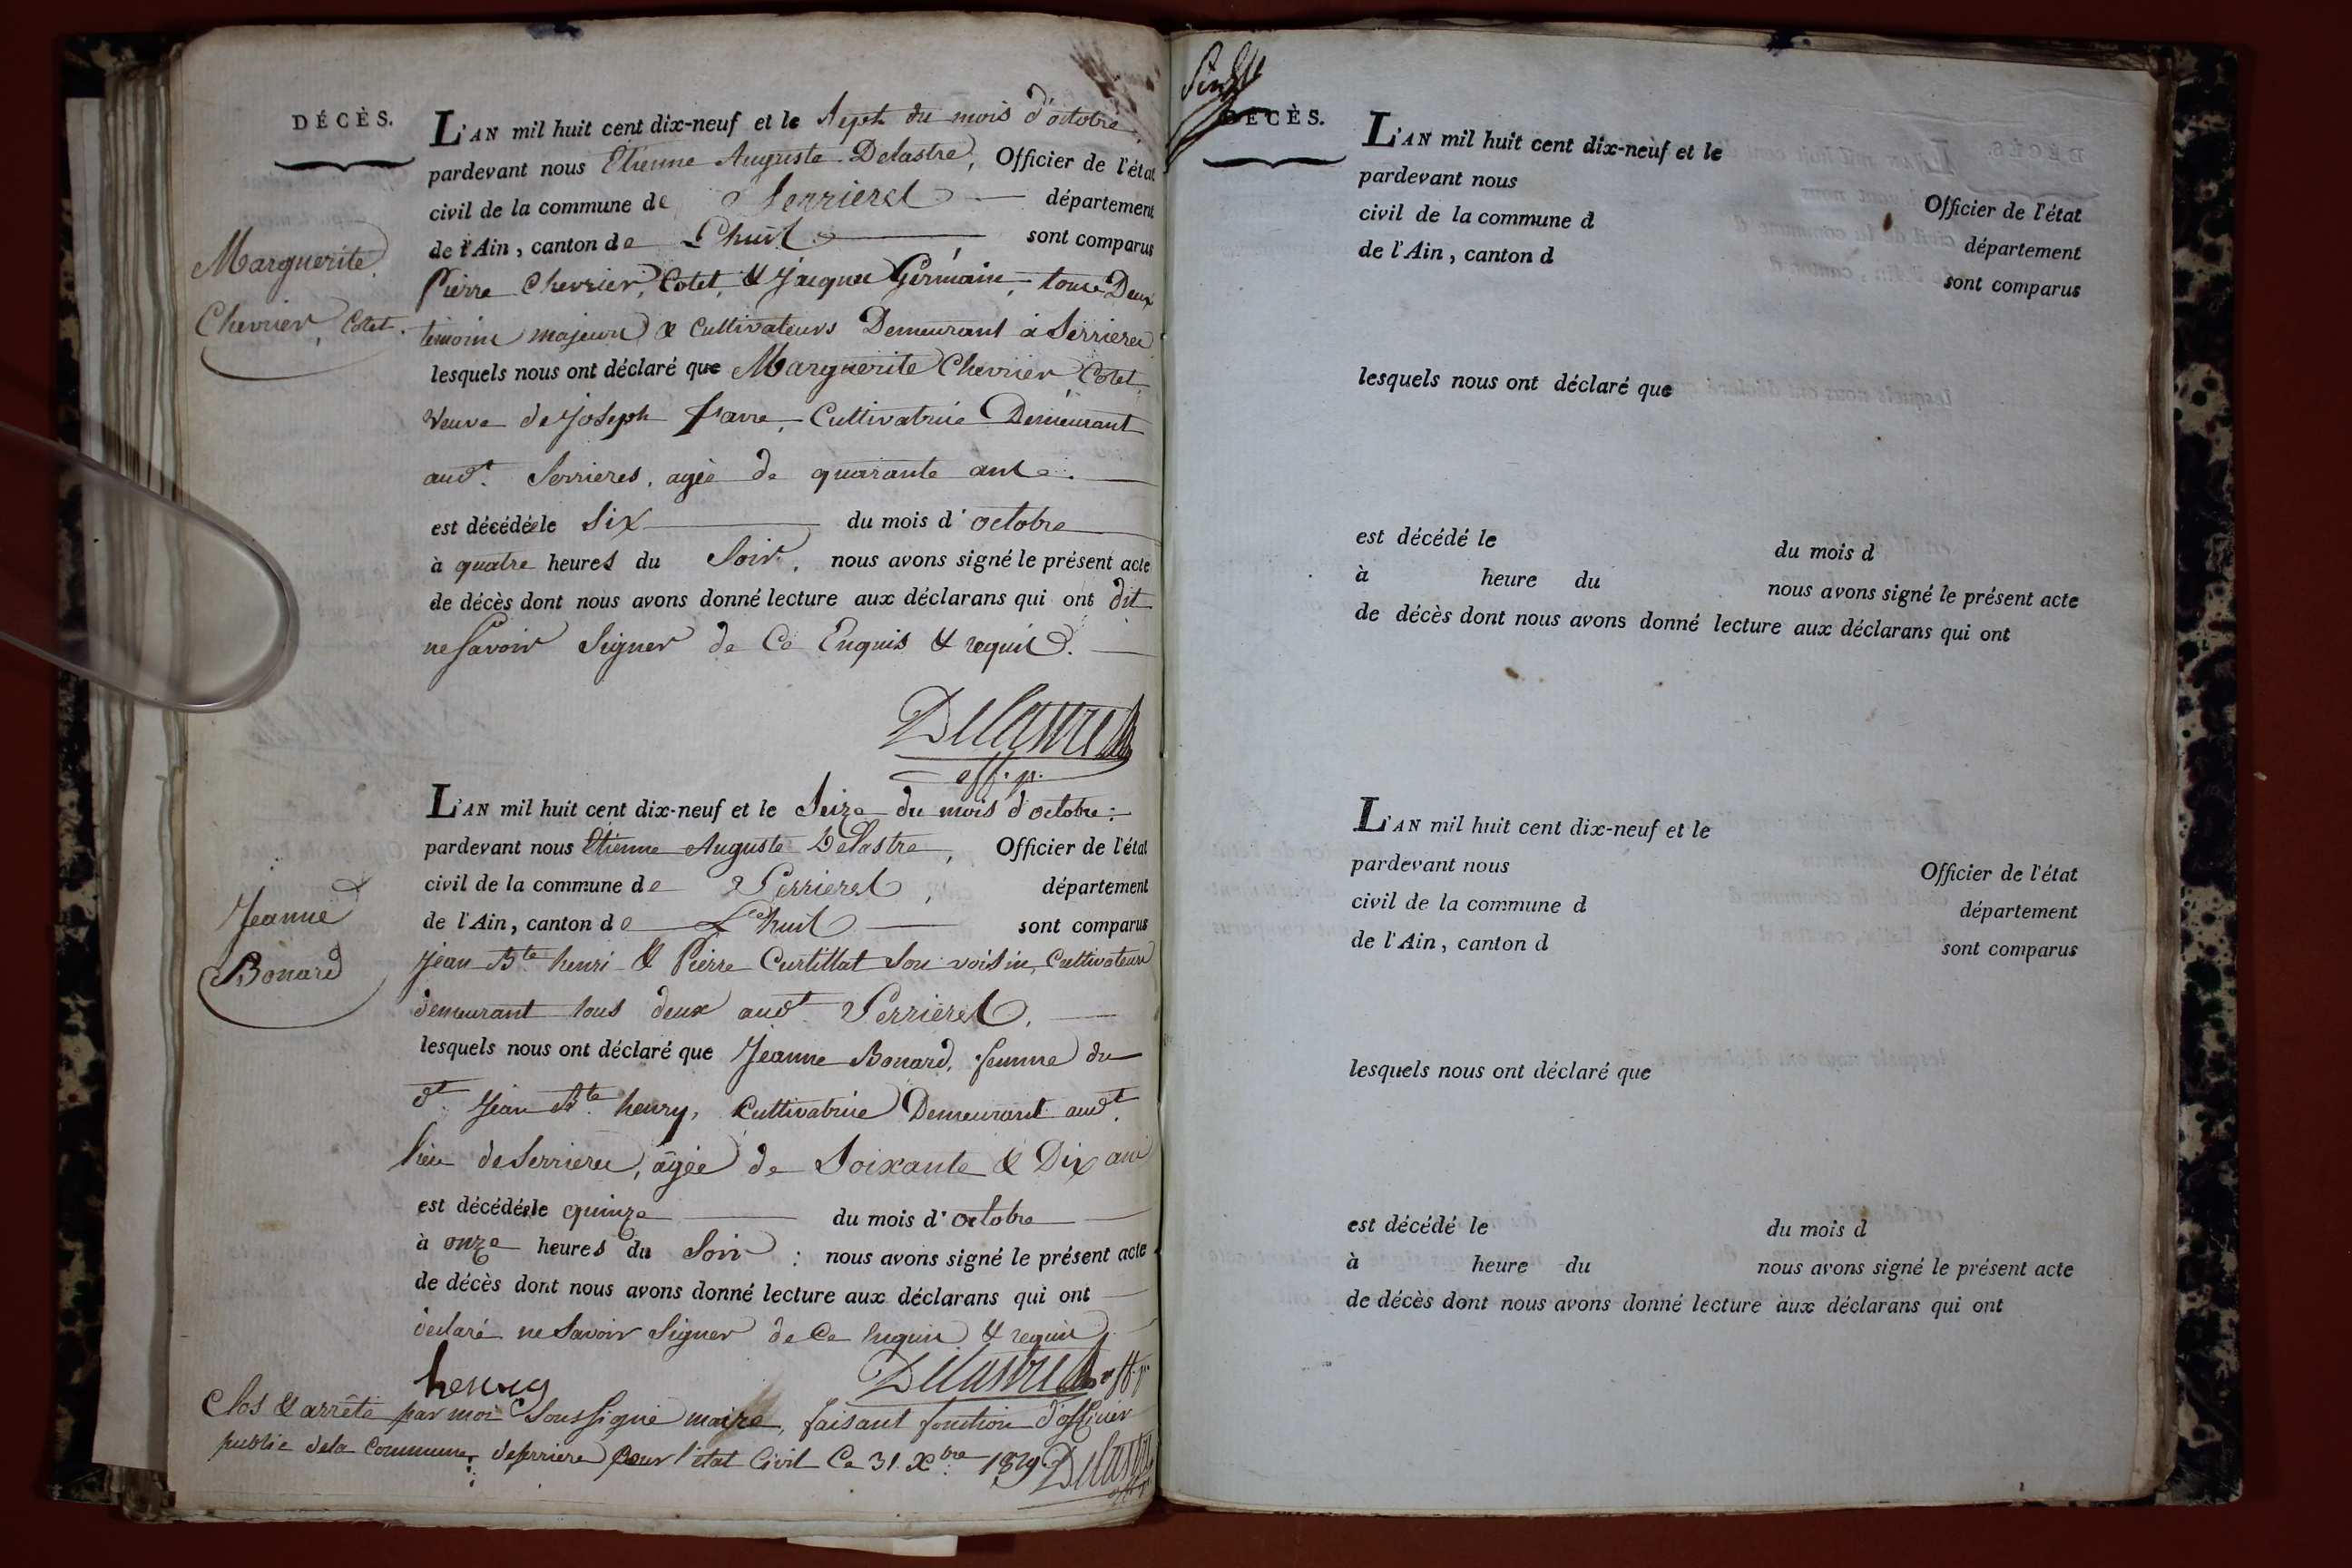 DÉCÈS.
L'AN mil huit cent dix-neuf et le Sept du mois d'octobre,
pardevant nous Etienne Auguste Delastre, Officier de l'état
civil de la commune de Serrieres département
de l'Ain, canton de Lhuis, sont comparus
Pierre Chevrier, Cotet, & Jacques Germain, tous Deux
témoins majeurs & Cultivateurs Demeurant à Serrieres
Marguerite
Chevrier, Cotet.
lesquels nous ont déclaré que Marguerite Chevrier Cotet,
veuve de Joseph favre, Cultivatrice Demeurant
aud.t Serrieres, agée de quarante ans.
est décédée le Six du mois d'octobre
à quatre heures du Soir, nous avons signé le présent acte
de décès dont nous avons donné lecture aux déclarans qui ont dit
ne Savoir Signer de Ce Enquis & requis.
Delastre
off. p.
L'AN mil huit cent dix-neuf et le Seize du mois d'octobre:
pardevant nous Etienne Auguste Delastre, Officier de l'état
civil de la commune de Serrieres, département
de l'Ain, canton de Lhuis sont comparus
Jean Bte henri & Pierre Curtillat Son voisin, Cultivateurs
demeurant tous deux audt Serrieres.
Jeanne
Bonard
lesquels nous ont déclaré que Jeanne Bonard, femme du
dt Jean Bte henry, Cultivatrice Demeurant audt.
lieu de Serrieres, âgée de Soixante & Dix ans
est décédée le quinze du mois d'octobre
à onze heures du Soir : nous avons signé le présent acte
de décès dont nous avons donné lecture aux déclarans qui ont
déclaré ne Savoir Signer de Ce Enquis & requis
henry Delastre off. p.
Clos & arrêté par moi Soussigné maire, faisant fonction d'officier
public de la Commune de serriere pour l'état Civil Ce 31. Xbre 1819. Delastre
DÉCÈS.
L'AN mil huit cent dix-neuf et le
pardevant nous Officier de l'état
civil de la commune d département
de l'Ain, canton d sont comparus
lesquels nous ont déclaré que
est décédé le du mois d
à heure du nous avons signé le présent acte
de décès dont nous avons donné lecture aux déclarans qui ont
L'AN mil huit cent dix-neuf et le
pardevant nous Officier de l'état
civil de la commune d département
de l'Ain, canton d sont comparus
lesquels nous ont déclaré que
est décédé le du mois d
à heure du nous avons signé le présent acte
de décès dont nous avons donné lecture aux déclarans qui ont